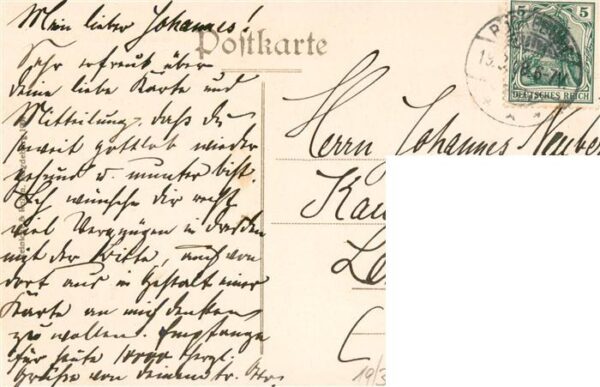 Mein lieber Johannes!
Sehr erfreut über
deine liebe Karte und
Mitteilung, daß du
soweit gottlob wieder
gesund u. munter bist.
Ich wünsche dir recht
viel Vergnügen in Dresden
mit der Bitte, auch von
dort aus in Gestalt einer
Karte an mich denken
zu wollen. Empfange
für heute 10000 herzl.
Grüße von deinem tr.
Postkarte
5 5
DEUTSCHES REICH
Herrn Johannes
19/3